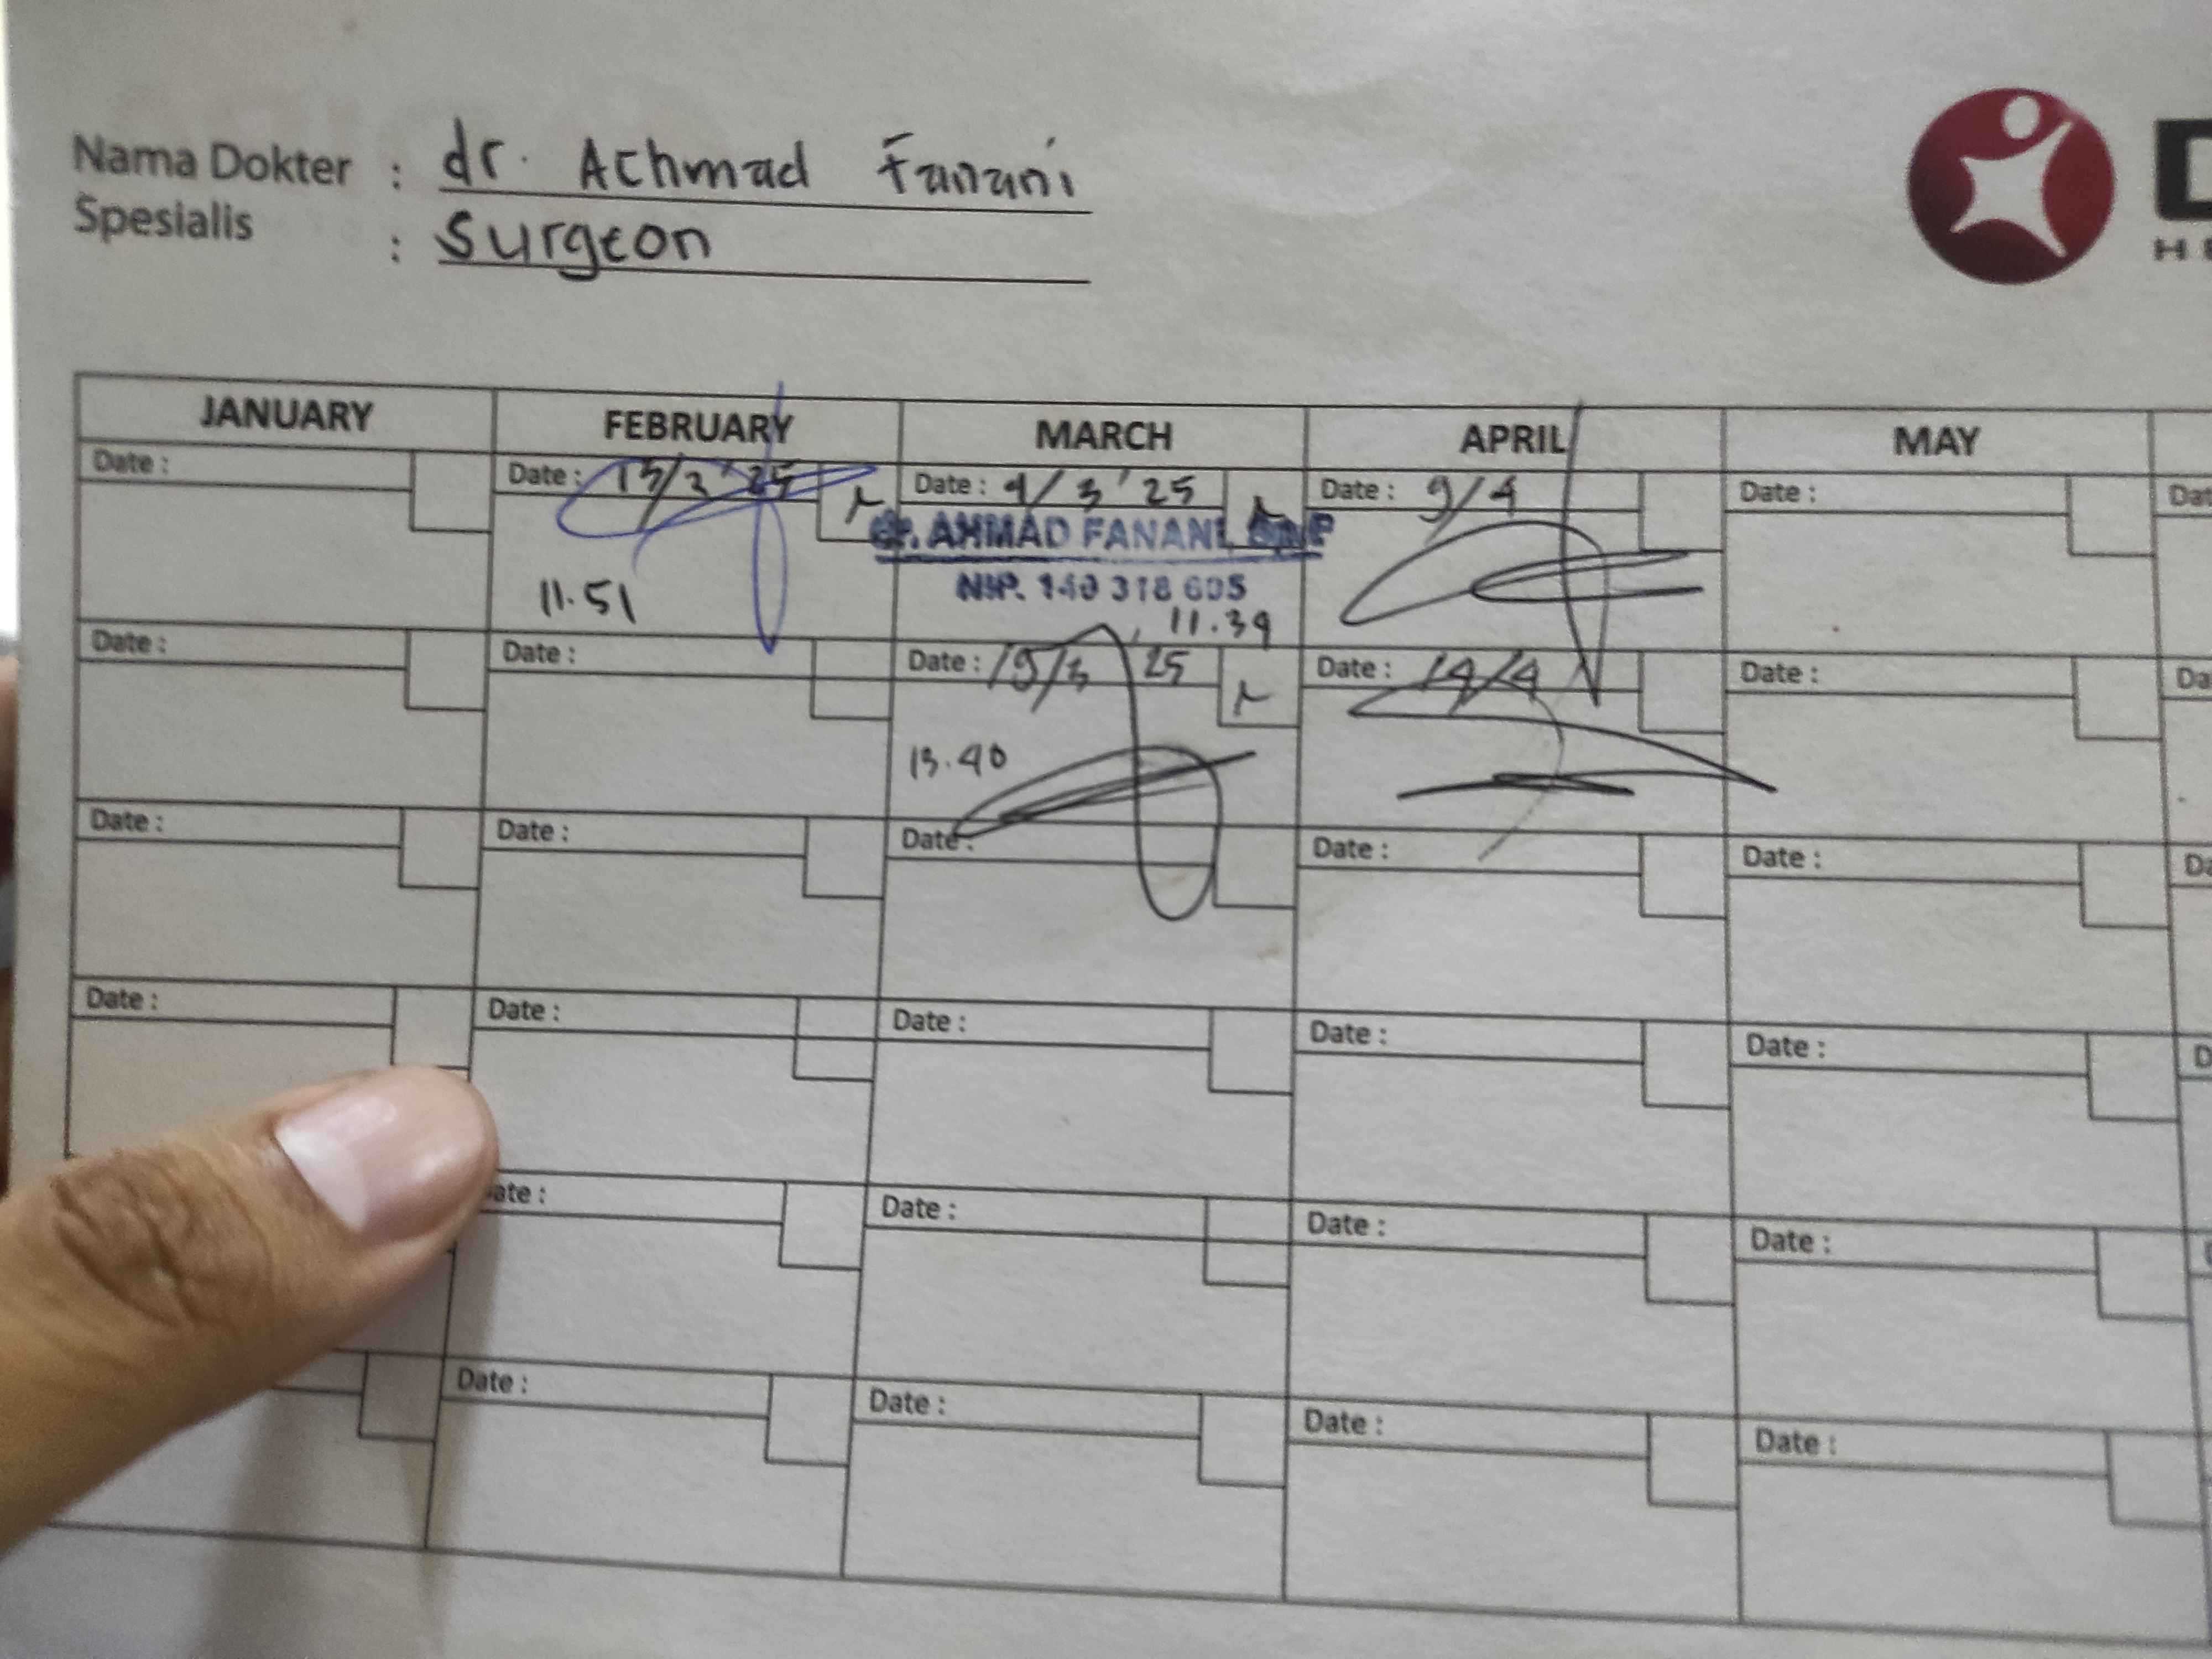 Nama Dokter : dr. Achmad Fanani
Spesialis : Surgeon
D
HE
JANUARY FEBRUARY MARCH APRIL MAY
Date : Date : 13/2 '25 Date : 4/3 '25 Date : 9/4 Date : Dat
dr. AHMAD FANANI
NIP. 140 318 605
11.51 11.39
Date : Date : Date : 19/3 25 Date : 14/4 Date : Da
13.40
Date : Date : Date : Date : Date : Da
Date : Date : Date : Date : Date : D
ate : Date : Date : Date :
Date : Date : Date : Date :